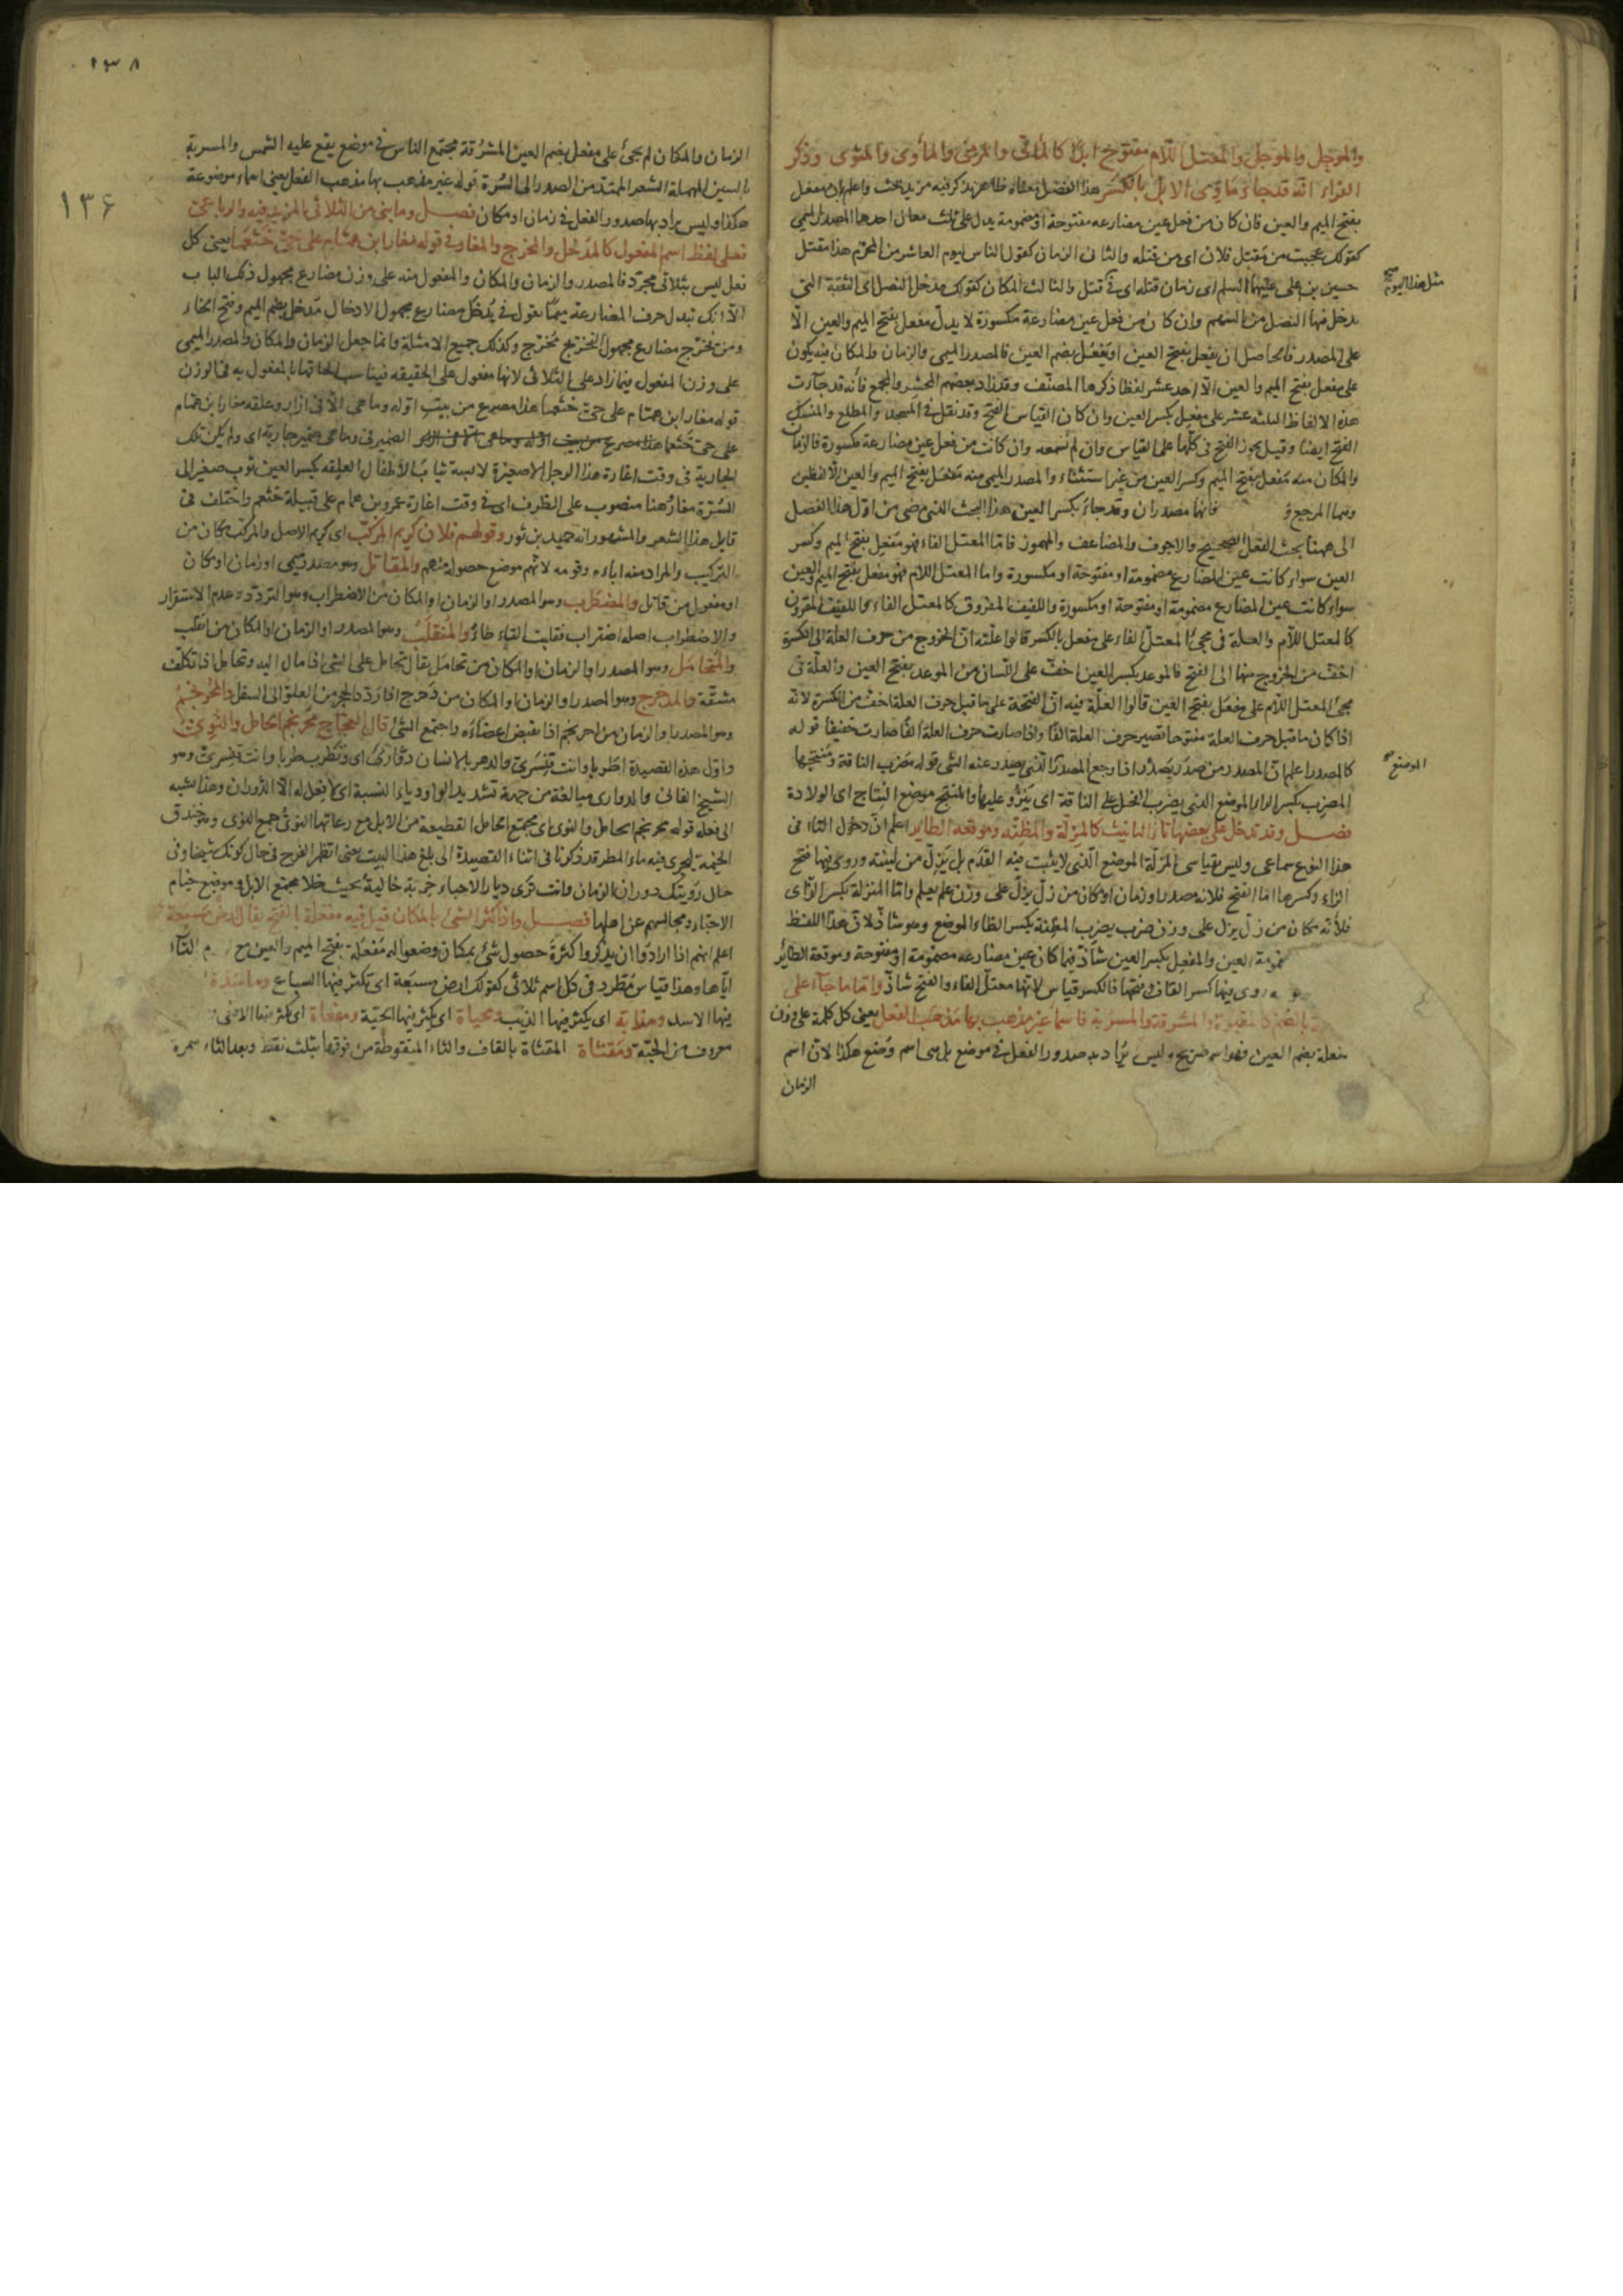 والموجل والموجل والمعتل اللام مفتوح ابدا كالمأتى والمرمى والمأوى والمثوى وذكر
الفراء انه قد جاء مأوى الابل بالكسر هذا الفصل معناه ظاهر يذكر فيه مزيد بحث واعلم بان مفعل
بفتح الميم والعين فان كان من فعل عين مضارعه مفتوحة او مضمومة يدل على ثلث معان احدها المصدر الميمى
كقولك عجبت من مقتل فلان اى من قتله والثانى الزمان كقول الناس ليوم العاشر من المحرم هذا مقتل
حسين بن على عليهما السلم اى زمان قتله اى فى قتل والثالث المكان كقولك مدخل النصل اى الثقبة التى
مثل هذا اليوم صح
يدخل فيها النصل من السهم وان كان من فعل عين مضارعه مكسورة لا يدل مفعل بفتح الميم والعين الا
على المصدر فالحاصل ان يفعل بفتح العين او يفعل بضم العين فالمصدر الميمى والزمان والمكان منه يكون
على مفعل بفتح الميم والعين الا احد عشر لفظا ذكرها المصنف وقد زاد بعضهم المحشر والمجمع فانه قد جاءت
هذه الالفاظ الثلثة عشر على مفعل بكسر العين وان كان القياس الفتح وقد نقل فى المسجد والمطلع والمنسك
الفتح ايضا وقيل يجوز الفتح فى كلها على القياس وان لم نسمعه وان كانت من فعل عين مضارعه مكسورة فالزمان
والمكان منه مفعل بفتح الميم وكسر العين من غير استثناء والمصدر الميمى منه مفعل بفتح الميم والعين الا لفظين
وهما المرجع و فانهما مصدران وقد جاء بكسر العين هذا البحث الذى مضى من اول هذا الفصل
الى ههنا بحث الفعل الصحيح والاجوف والمضاعف والمهموز فاما المعتل الفاء فهو مفعل بفتح الميم وكسر
العين سواء كانت عين المضارع مضمومة او مفتوحة او مكسورة واما المعتل اللام فهو مفعل بفتح الميم والعين
سواء كانت عين المضارع مضمومة او مفتوحة او مكسورة واللفيف المفروق كالمعتل الفاء واللفيف المقرون
كالمعتل اللام والعلة فى مجئ المعتل الفاء على مفعل بالكسر قالوا علته ان الخروج من حرف العلة الى الكسرة
اخف من الخروج منها الى الفتح فالموعد بكسر العين اخف على اللسان من الموعد بفتح العين والعلة فى
مجئ المعتل اللام على مفعل بفتح العين قالوا العلة فيه ان الفتحة على ما قبل حرف العلة اخف من الكسرة لانه
اذا كان ما قبل حرف العلة مفتوحا تصير حرف العلة الفا واذا صارت حرف العلة الفا صارت خفيفا قوله
كالمصدر اعلم ان المصدر من صدر يصدر اذا رجع المصدر الذى يصدر عنه الشى قوله مضرب الناقة ومنتجها
الموضع
المضرب بكسر الراء الموضع الذى يضرب الفحل على الناقة اى ينزو عليها والمنتج موضع النتاج اى الولادة
فصل وقد تدخل على بعضها تاء التانيث كالمزلة والمظنة وموقعة الطاير اعلم ان دخول التاء فى
هذا النوع سماعى وليس بقياسى المزلة الموضع الذى لا يثبت فيه القدم بل يزل من لينته وروى فيها فتح
الزاء وكسرها اما الفتح فلانه مصدر او زمان او مكان من زل يزل على وزن علم يعلم واما المنزلة بكسر الزاى
فلأنه مكان من زل يزل على وزن ضرب يضرب المظنة بكسر الظاء الموضع وهو شاذ لان هذا اللفظ
مضمومة العين والمفعل بكسر العين شاذ فيما كان عين مضارعه مضمومة او مفتوحة وموقعة الطائر
روى فيها كسر القاف وفتحها فالكسر قياس لانها معتل الفاء والفتح شاذ واما ما جاء على
بالضم كالمقبرة والمشرقة والمسربة فاسماء غير مذهوب بها مذهب الفعل يعنى كل كلمة على وزن
مفعلة بضم العين فهو اسم صريح وليس يراد به صدور الفعل فى موضع بل هى اسم وضع هكذا لان اسم
الزمان
١٣٨
١٣۶
الزمان والمكان لم يجئ على مفعل بضم العين المشرقة مجتمع الناس فى موضع يقع عليه الشمس والمسربة
بالسين المهملة الشعر الممتد من الصدر الى السرة قوله غير مذهب بها مذهب الفعل يعنى اسماء موضوعة
هكذا وليس يراد بها صدور الفعل فى زمان او مكان فصل وما بنى من الثلاثى المزيد فيه والرباعى
فعلى لفظ اسم المفعول كالمدخل والمخرج والمغار فى قوله مغار ابن همام على حى خثعما يعنى كل
فعل ليس بثلاثى مجرد فالمصدر والزمان والمكان والمفعول منه على وزن مضارع مجهول ذلك الباب
الا انك تبدل حرف المضارعة ميما تقول فى يدخل مضارع مجهول لادخال مدخل بضم الميم وفتح الخاء
ومن يخرج مضارع مجهول مخرج وكذلك جميع الامثلة وانما جعل الزمان والمكان والمصدر الميمى
على وزن المفعول فيما زاد على الثلاثى لانها مفعول على الحقيقه فيناسب الحاقها بالمفعول به فى الوزن
قوله مغار ابن همام على حى خثعما هذا مصرع من بيت اوله وما هى الا فى ازار وعلقه مغار ابن همام
على حى خثعما الضمير فى وما هى ضمير جارية اى ولم يكن تلك
الجارية فى وقت اغارة هذا الرجل الا صغيرة لابسة ثياب الاطفال العلقه بكسر العين ثوب صغير الى
السرة مغار هنا منصوب على الظرف اى فى وقت اغارة عمرو بن همام على قبيلة خثعم واختلف فى
قايل هذا الشعر والمشهور انه حميد بن ثور وقولهم فلان كريم المركب اى كريم الاصل والمركب مكان من
التركيب والمراد منه اباءه وقومه لانهم موضع حصوله منهم والمقاتل وهو مصدر ميمى او زمان او مكان
او مفعول من قاتل والمضطرب وهو المصدر او الزمان او المكان من الاضطراب وهو التردد وعدم الاستقرار
والاضطراب اصله اضتراب فقلبت التاء طاء والمنقلب وهو المصدر او الزمان او المكان من انقلب
والمتحامل وهو المصدر او الزمان او المكان من تحامل يقال تحامل على الشى اذا مال اليه وتحامل اذا تكلف
مشقة والمدحرج وهو المصدر او الزمان او المكان من دحرج اذا رد الحجر من العلو الى السفل والمحرنجم
وهو المصدر او الزمان من احرنجم اذا تقبض اعضاؤه واجتمع الشئ قال العجاج محرنجم الحامل والنوى
واول هذه القصيدة اطربا وانت قنسرى والدهر بالانسان دوارى اى وتطرب طربا وانت قنسرى وهو
الشيخ الفانى والدوارى مبالغة من جهة تشديد الواو وياء النسبة اى لا فعل له الا الدوران وهذا شبه
الى فعله قوله محرنجم الحامل والنوى اى مجتمع الحامل القطيعة من الابل مع رعاتها النوى جمع النؤى وهو خندق
الخيمة ليجرى فيه ماء المطر قد ذكرنا فى اثناء القصيدة الى بلغ هذا البيت يعنى اتظهر الفرح فى حال كونك شيخا وفى
حال رؤيتك دوران الزمان وانت ترى ديار الاحباء خربة خالية بحيث خلا مجتمع الابل وموضع خيام
الاحباء ومجالسهم عن اهلها فصل واذا كثر الشئ بالمكان قيل فيه مفعلة بالفتح يقال ارض مسبعة
اعلم انهم اذا ارادوا ان يذكروا كثرة حصول شئ بمكان وضعوا له مفعلة بفتح الميم والعين مع التاء
اياها وهذا قياس مطرد فى كل اسم ثلاثى كقولك ارض مسبعة اى تكثر فيها السباع وماسدة
فيها الاسد ومذابة اى يكثر فيها الذيب ومحياة اى يكثر فيها الحية ومفعاة اى كثر فيها الافعى
معروف من الحية ومقثاة المقثاة بالقاف والثاء المنقوطة من فوقها بثلث نقط وبعد الثاء همزة